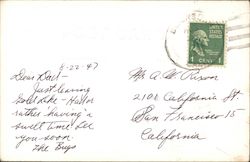 6-22-47
Dear Dait -
Just leaving
Salt Lake - Having
rather 'having' a
swell time. See
you soon.
The Bugs
UNITED STATES POSTAGE
1 CENT 1
Mr. A. W. Rixon
2101 California St.
San Francisco 15
California